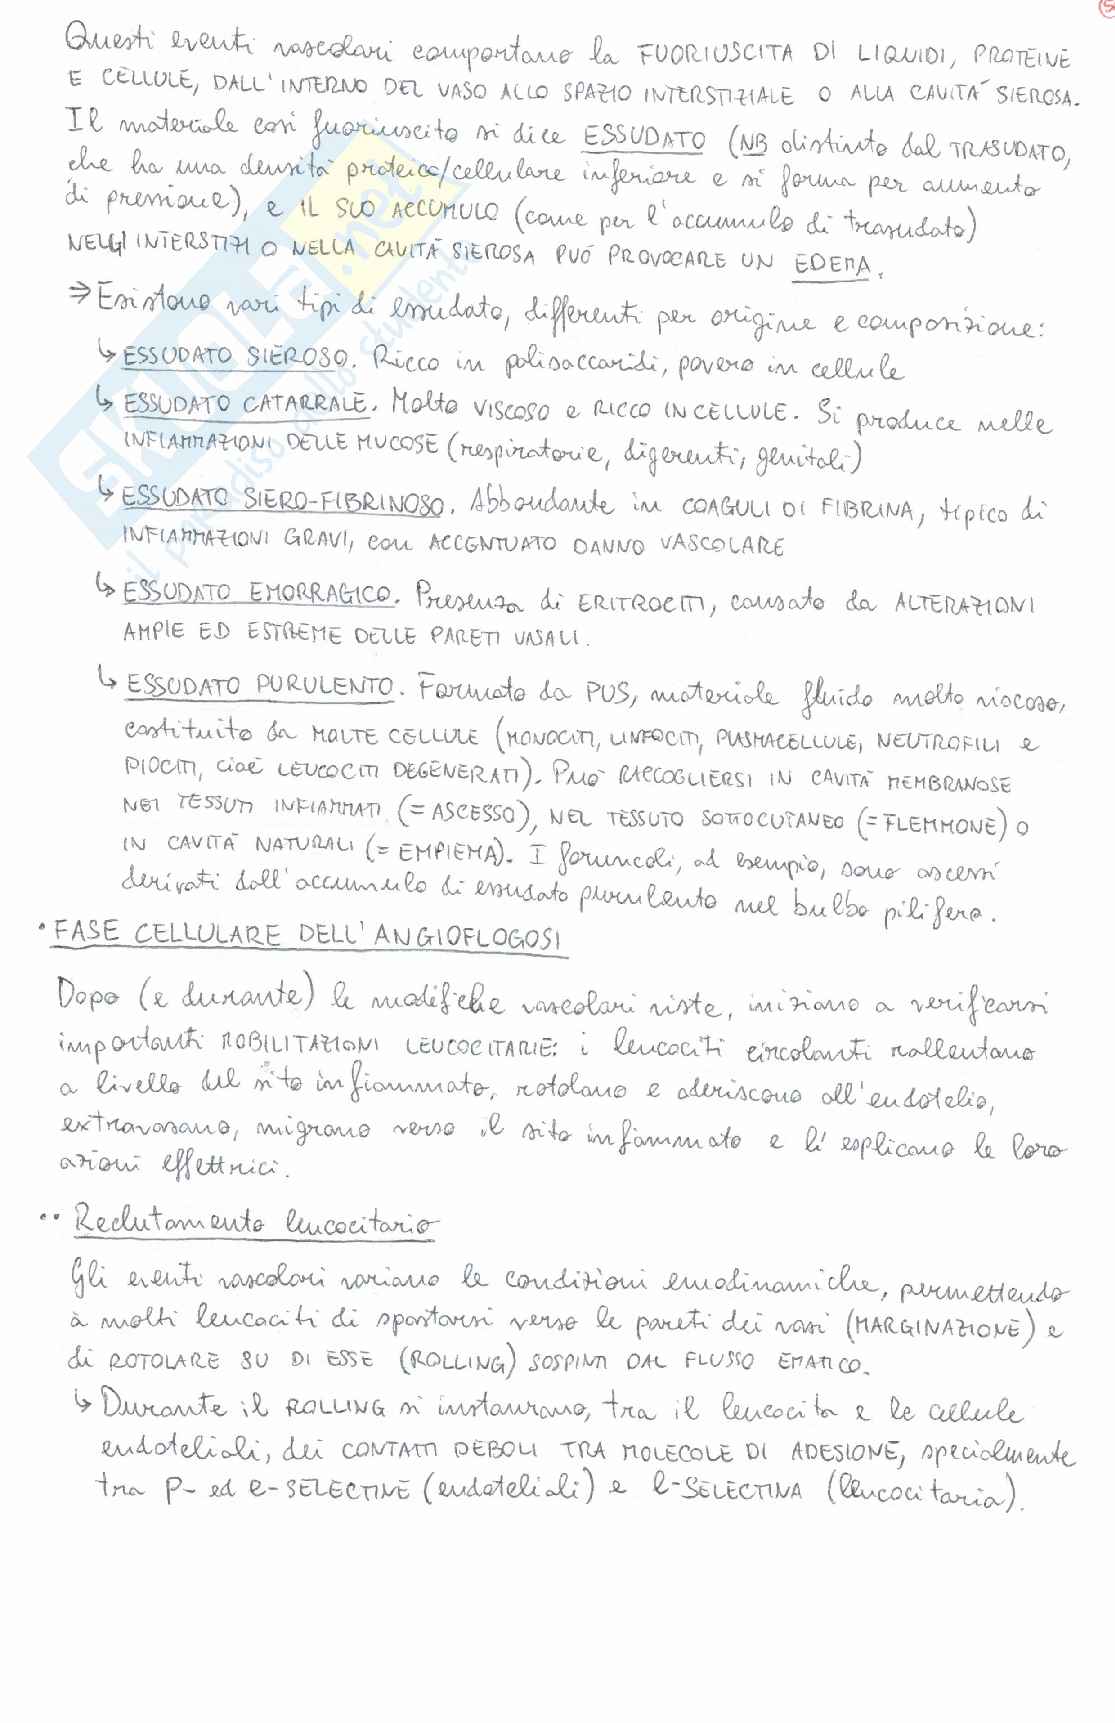 Questi eventi vascolari comportano la FUORIUSCITA DI LIQUIDI, PROTEINE
E CELLULE, DALL'INTERNO DEL VASO ALLO SPAZIO INTERSTIZIALE O ALLA CAVITÀ SIEROSA.
Il materiale così fuoriuscito si dice ESSUDATO (NB distinto dal TRASUDATO,
che ha una densità proteica/cellulare inferiore e si forma per aumento
di pressione), e IL SUO ACCUMULO (come per l'accumulo di trasudato)
NEGLI INTERSTIZI O NELLA CAVITÀ SIEROSA PUÒ PROVOCARE UN EDEMA.
⇒ Esistono vari tipi di essudato, differenti per origine e composizione:
↳ ESSUDATO SIEROSO. Ricco in polisaccaridi, povero in cellule
↳ ESSUDATO CATARRALE. Molto VISCOSO e RICCO IN CELLULE. Si produce nelle
INFIAMMAZIONI DELLE MUCOSE (respiratorie, digerenti, genitali)
↳ ESSUDATO SIERO-FIBRINOSO. Abbondante in COAGULI DI FIBRINA, tipico di
INFIAMMAZIONI GRAVI, con ACCENTUATO DANNO VASCOLARE
↳ ESSUDATO EMORRAGICO. Presenza di ERITROCITI, causato da ALTERAZIONI
AMPIE ED ESTREME DELLE PARETI VASALI.
↳ ESSUDATO PURULENTO. Formato da PUS, materiale fluido molto viscoso,
costituito da MOLTE CELLULE (MONOCITI, LINFOCITI, PLASMACELLULE, NEUTROFILI e
PIOCITI, cioè LEUCOCITI DEGENERATI). Può RACCOGLIERSI IN CAVITÀ MEMBRANOSE
NEI TESSUTI INFIAMMATI (= ASCESSO), NEL TESSUTO SOTTOCUTANEO (= FLEMMONE) O
IN CAVITÀ NATURALI (= EMPIEMA). I foruncoli, ad esempio, sono ascessi
derivati dall'accumulo di essudato purulento nel bulbo pilifero.
• FASE CELLULARE DELL'ANGIOFLOGOSI
Dopo (e durante) le modifiche vascolari viste, iniziano a verificarsi
importanti MOBILITAZIONI LEUCOCITARIE: i leucociti circolanti rallentano
a livello del sito infiammato, rotolano e aderiscono all'endotelio,
extravasano, migrano verso il sito infiammato e lì esplicano le loro
azioni effettrici.
•• Reclutamento leucocitario
Gli eventi vascolari variano le condizioni emodinamiche, permettendo
a molti leucociti di spostarsi verso le pareti dei vasi (MARGINAZIONE) e
di ROTOLARE SU DI ESSE (ROLLING) SOSPINTI DAL FLUSSO EMATICO.
↳ Durante il ROLLING si instaurano, tra il leucocita e le cellule
endoteliali, dei CONTATTI DEBOLI TRA MOLECOLE DI ADESIONE, specialmente
tra P- ed e-SELECTINE (endoteliali) e l-SELECTINA (leucocitaria).
SKUOLA.net
il paradiso dello studente